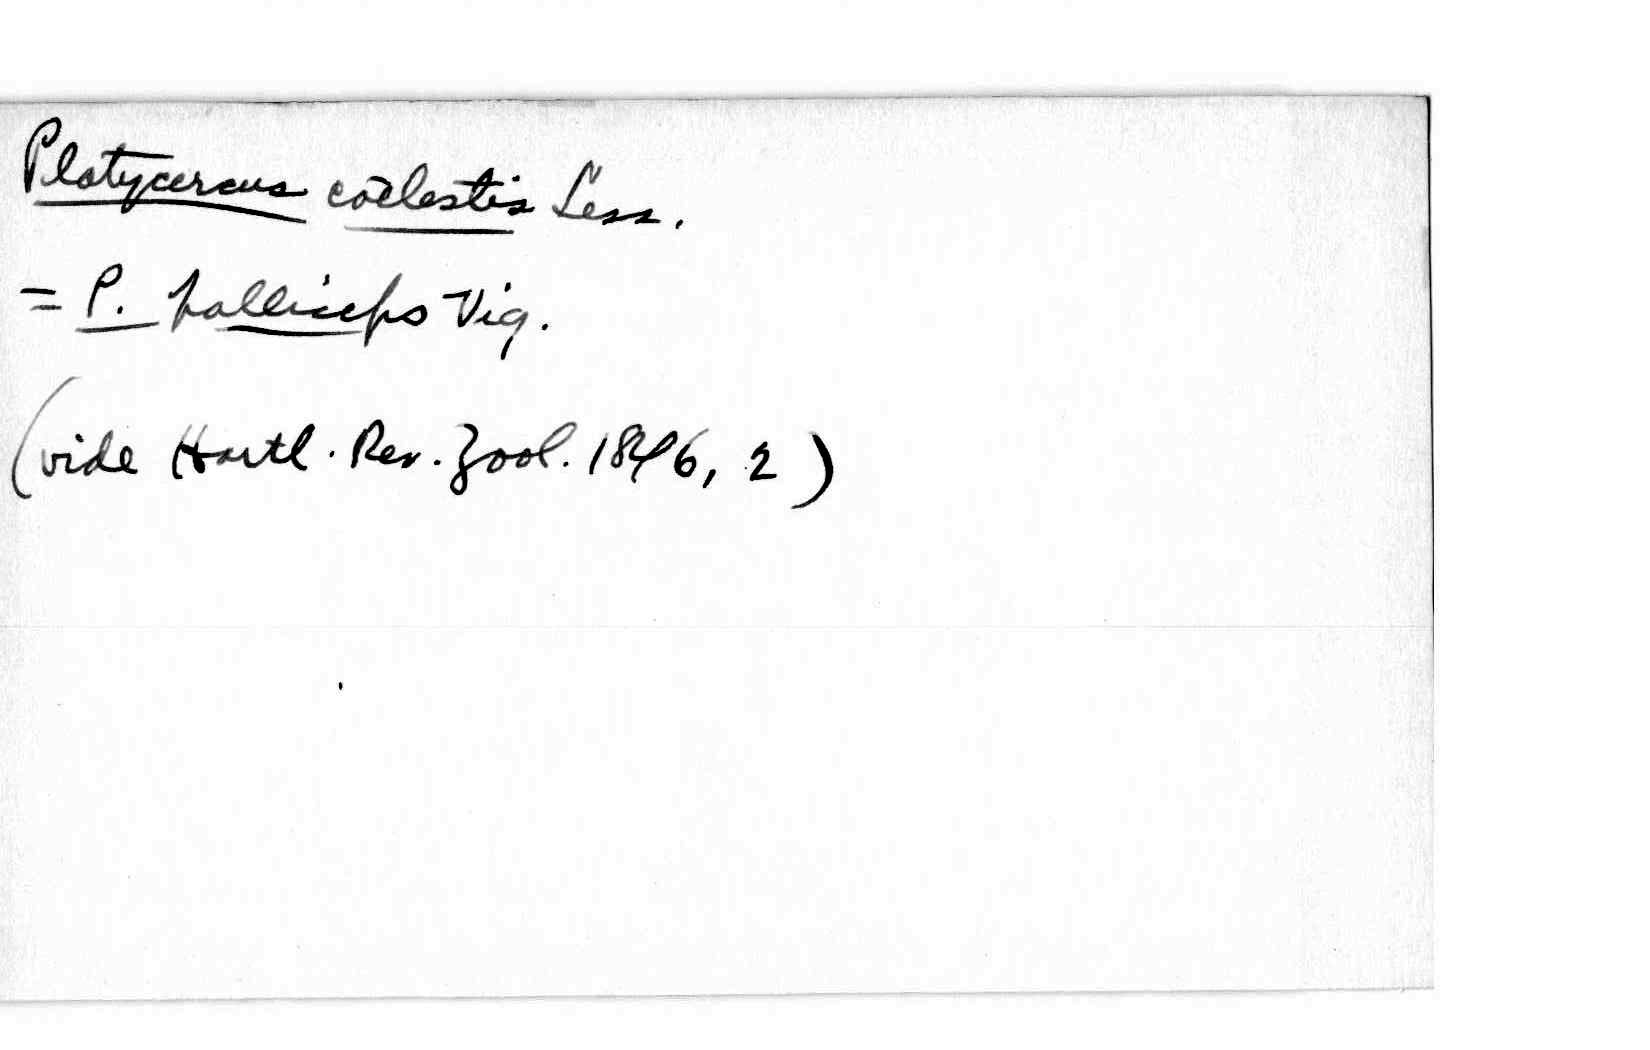 Platycercus coelestis Less.
= P. palliceps Vig.
(vide Hartl. Rev. Zool. 1846, 2)